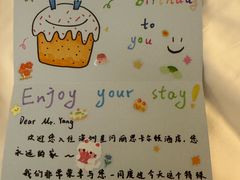 Birthday
to
you
Enjoy your stay!
Dear Mr. Yang
欢迎您入住深圳星河丽思卡尔顿酒店，您
永远的家～
我们非常荣幸与您一同度过今天这个特殊